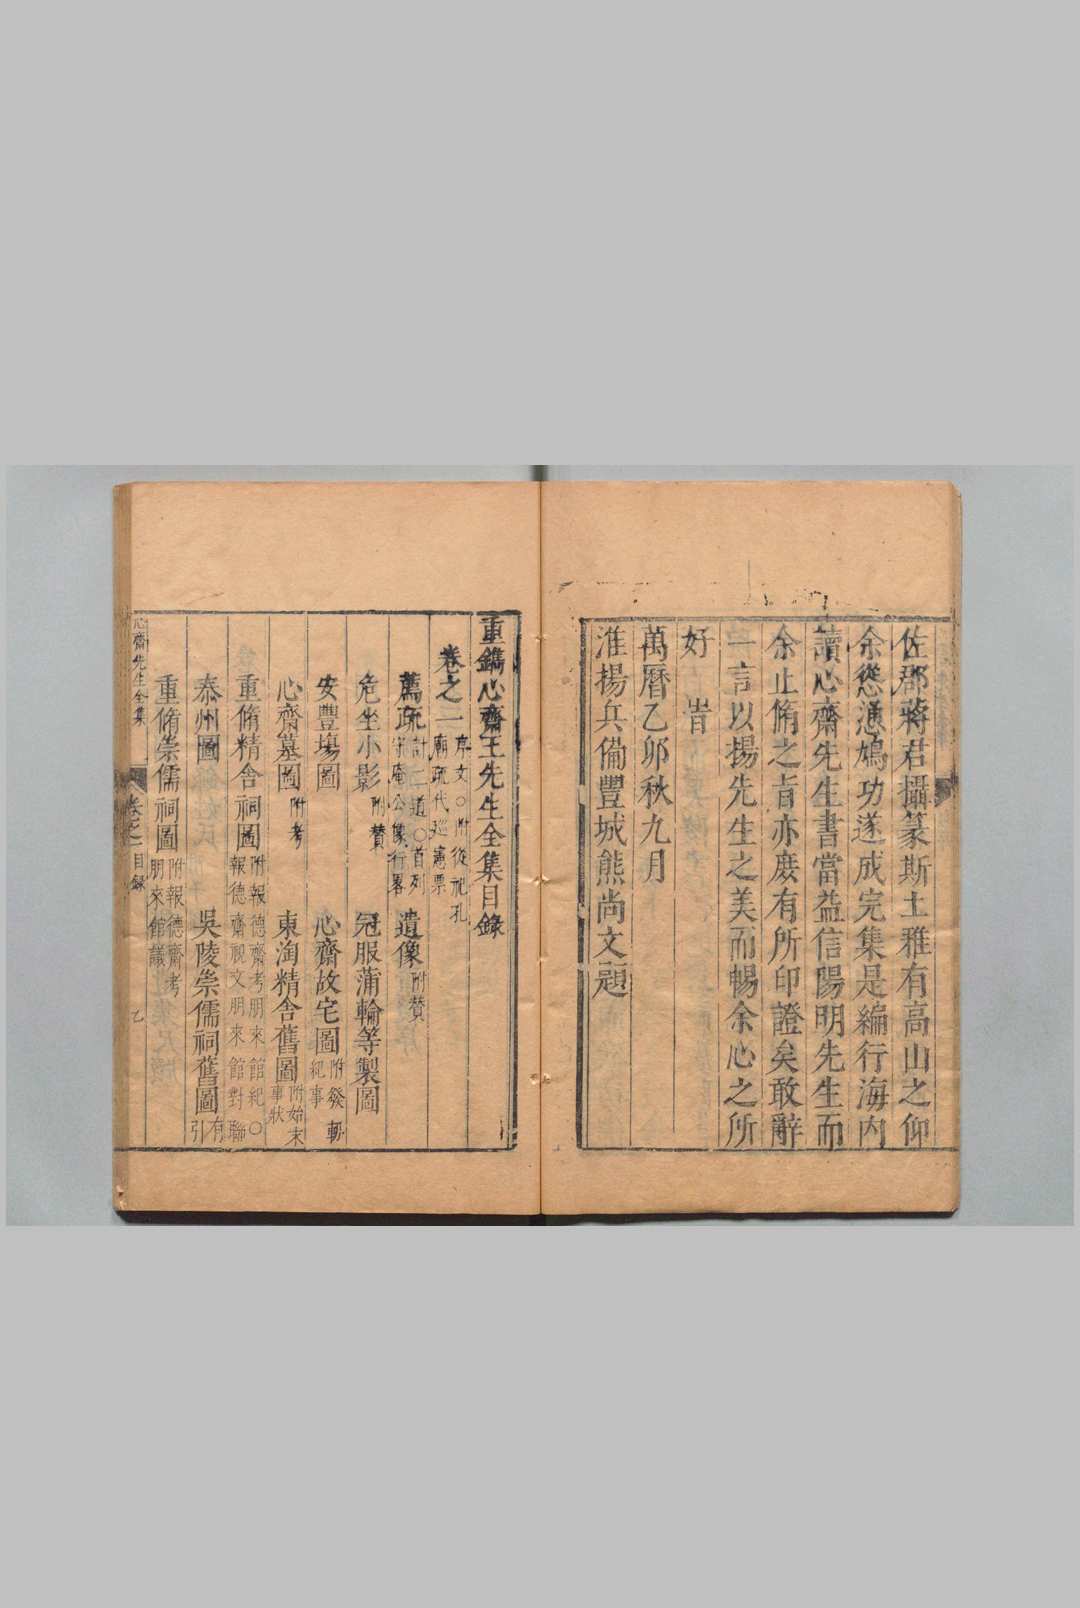 佐郡蔣君攝篆斯土雅有高山之仰
余慫慂鳩功遂成完集是編行海内
讀心齋先生書當益信陽明先生而
余止脩之㫖亦庻有所印證矣敢辭
一言以揚先生之美而暢余心之所
好　㫖
萬曆乙卯秋九月
淮揚兵備豐城熊尚文題
重鐫心齋王先生全集目錄
卷之一
序文○附從祀孔
廟疏代巡憲票
薦疏
計二道○首列
遺像
附贊
危坐小影
附贊
冠服蒲輪等製圖
安豐塲圖
心齋故宅圖
紀事
心齋墓圖
附考
東淘精舍舊圖
附始末
事狀
重脩精舍祠圖
附報德齋考朋來館紀○
報德齋祝文朋來館對聯
泰州圖
吳陵崇儒祠舊圖
有
引
重脩崇儒祠圖
附報德齋考
朋來館議
心齋先生全集
卷之一目錄
乙